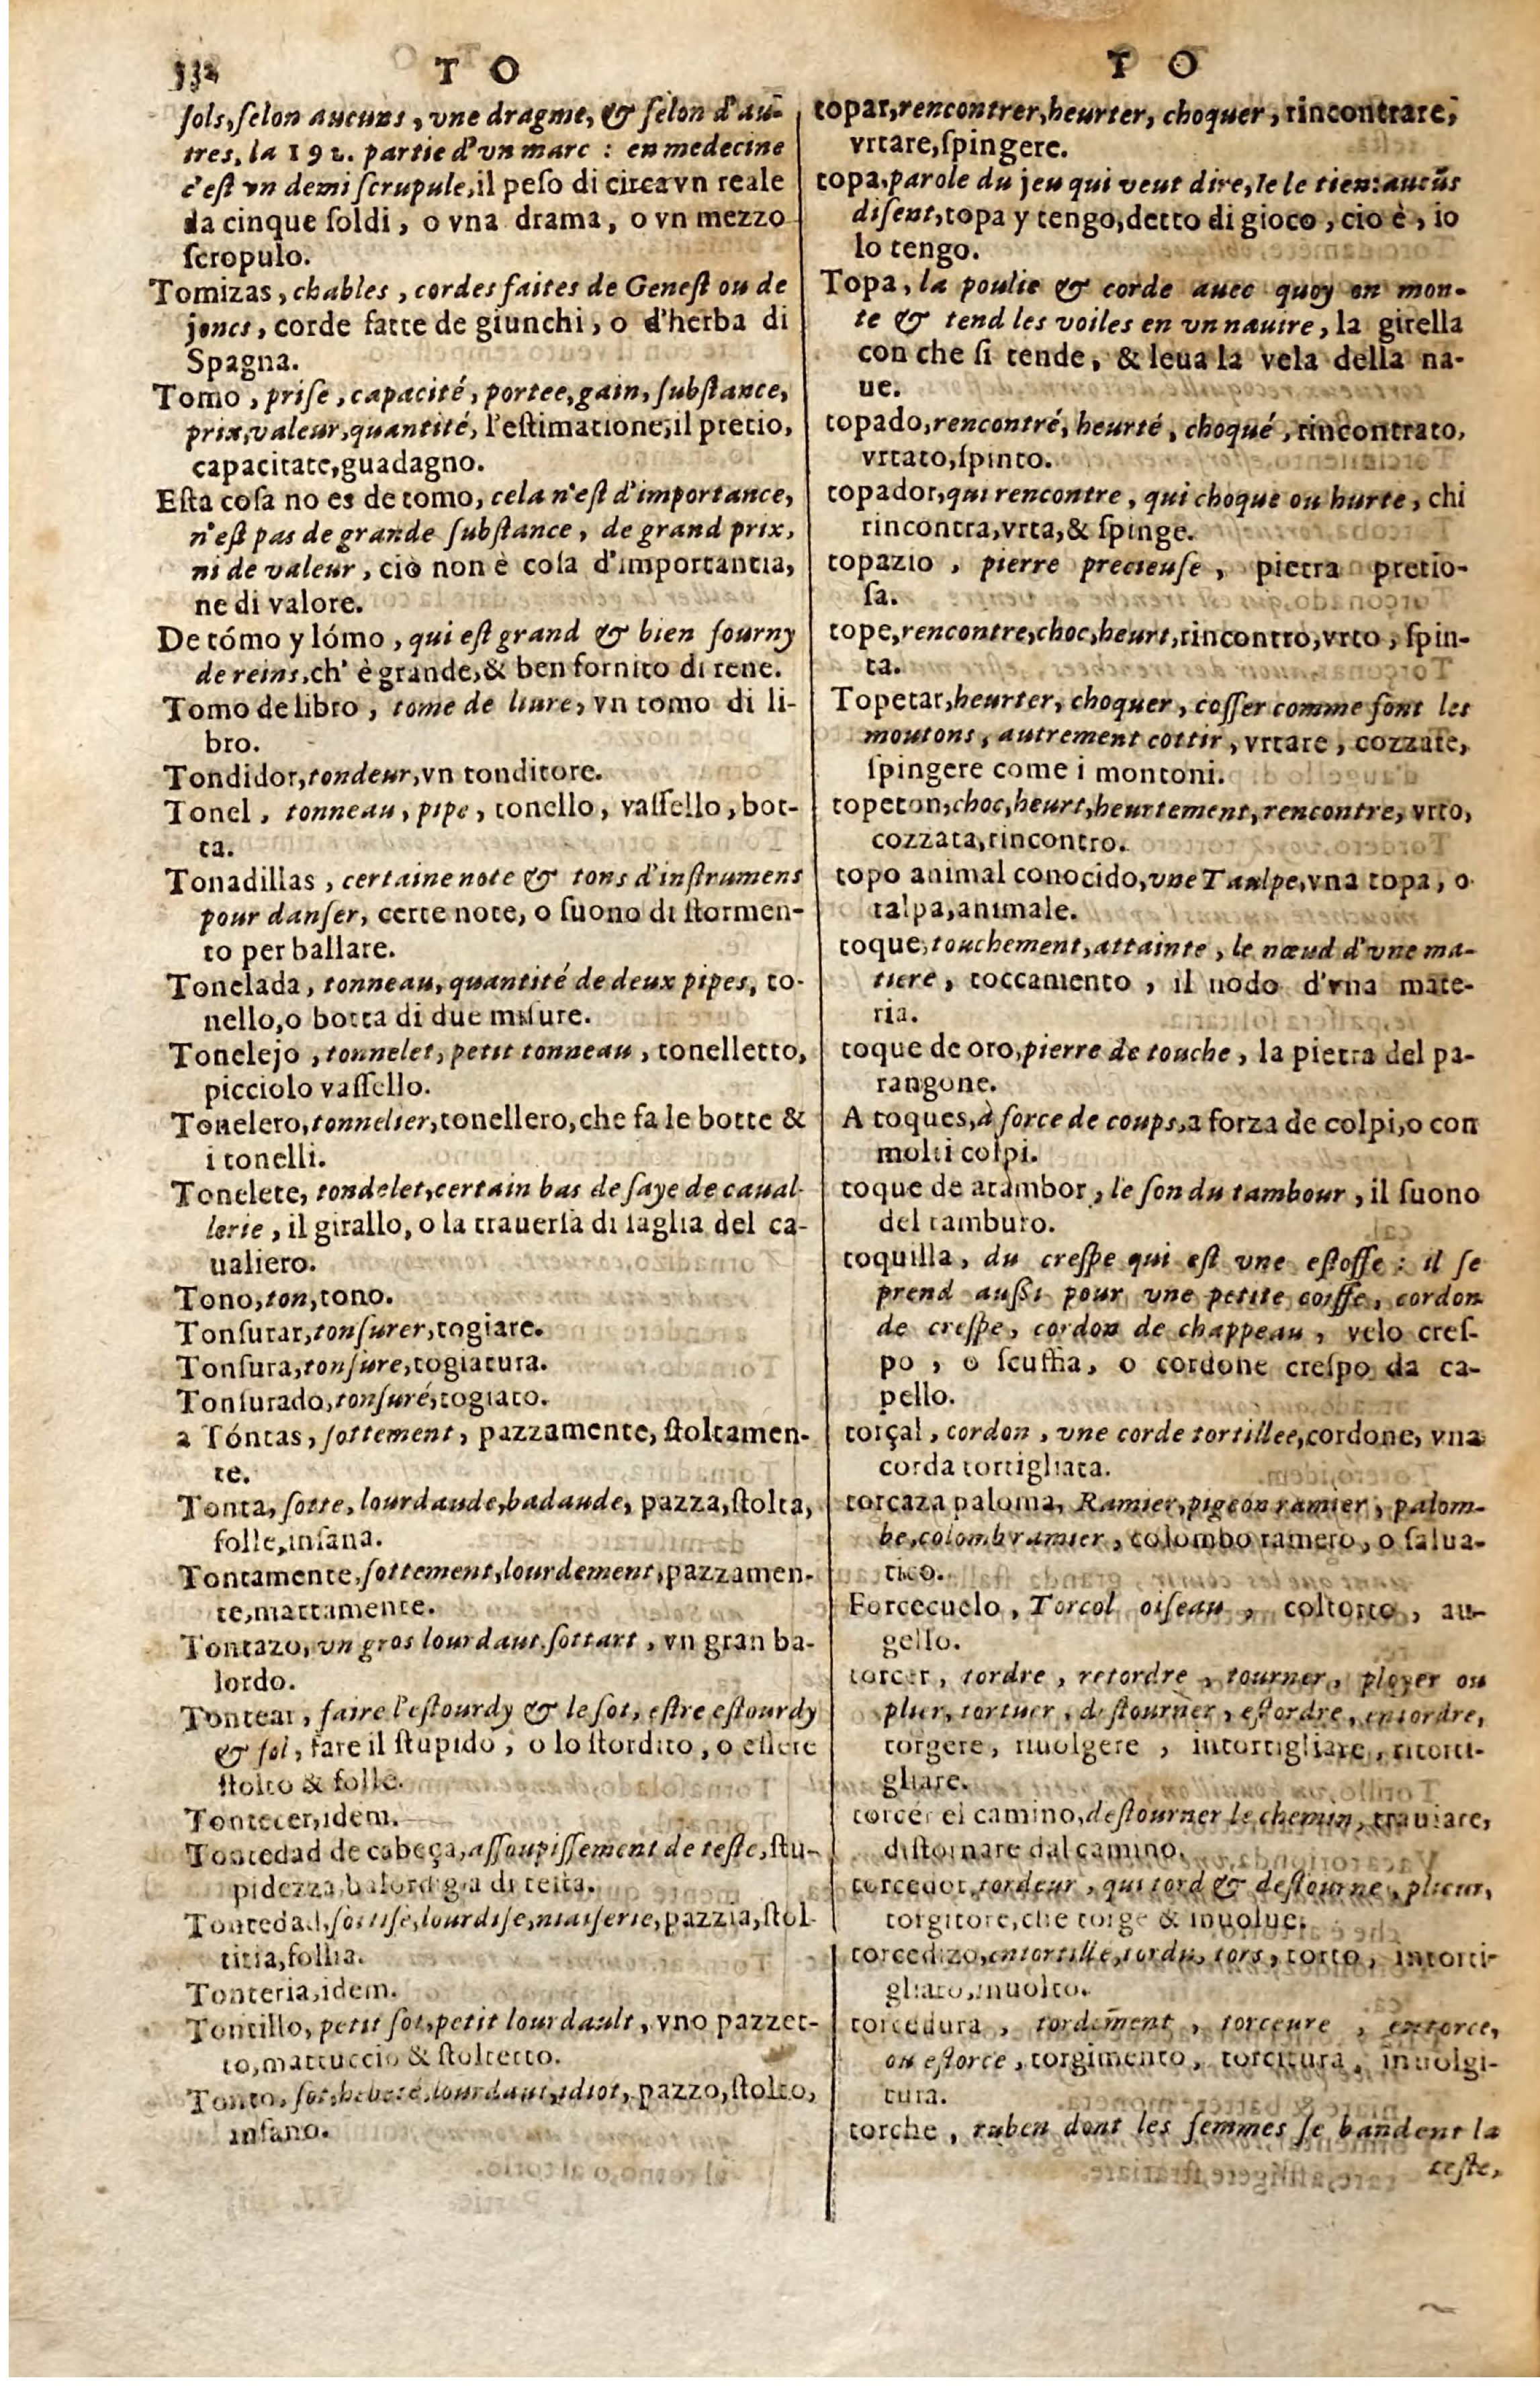 332 T O
ſols, ſelon aucuns, vne dragme, & ſelon d'au-
tres, la 192. partie d'vn marc : en medecine
c'eſt vn demi ſcrupule, il peſo di circa vn reale
da cinque ſoldi, o vna drama, o vn mezzo
ſcropulo.
Tomizas, chables, cordes faites de Geneſt ou de
joncs, corde fatte de giunchi, o d'herba di
Spagna.
Tomo, priſe, capacité, portee, gain, ſubſtance,
prix, valeur, quantité, l'eſtimatione, il pretio,
capacitate, guadagno.
Eſta coſa no es de tomo, cela n'eſt d'importance,
n'eſt pas de grande ſubſtance, de grand prix,
ni de valeur, ciò non è coſa d'importantia,
ne di valore.
De tómo y lómo, qui eſt grand & bien fourny
de reins, ch' è grande, & ben fornito di rene.
Tomo de libro, tome de liure, vn tomo di li-
bro.
Tondidor, tondeur, vn tonditore.
Tonel, tonneau, pipe, tonello, vaſſello, bot-
ta.
Tonadillas, certaine note & tons d'inſtrumens
pour danſer, certe note, o ſuono di ſtormen-
to per ballare.
Tonelada, tonneau, quantité de deux pipes, to-
nello, o botta di due miſure.
Tonelejo, tonnelet, petit tonneau, tonelletto,
picciolo vaſſello.
Tonelero, tonnelier, tonellero, che fa le botte &
i tonelli.
Tonelete, tondelet, certain bas de ſaye de caual-
lerie, il girallo, o la trauerſa di ſaglia del ca-
ualiero.
Tono, ton, tono.
Tonſurar, tonſurer, togiare.
Tonſura, tonſure, togiatura.
Tonſurado, tonſuré, togiato.
a Tóntas, ſottement, pazzamente, ſtoltamen-
te.
Tonta, ſotte, lourdaude, badaude, pazza, ſtolta,
folle, inſana.
Tontamente, ſottement, lourdement, pazzamen-
te, mattamente.
Tontazo, vn gros lourdaut, ſottart, vn gran ba-
lordo.
Tontear, faire l'eſtourdy & le ſot, eſtre eſtourdy
& fol, fare il ſtupido, o lo ſtordito, o eſſere
ſtolto & folle.
Tontecer, idem.
Tontedad de cabeça, aſſoupiſſement de teſte, ſtu-
pidezza, balordigia di teſta.
Tontedad, ſottiſe, lourdiſe, niaiſerie, pazzia, ſtol-
titia, follia.
Tonteria, idem.
Tontillo, petit ſot, petit lourdault, vno pazzet-
to, mattuccio & ſtoltetto.
Tonto, ſot, hebeté, lourdaut, idiot, pazzo, ſtolto,
inſano.
T O
topar, rencontrer, heurter, choquer, rincontrare,
vrtare, ſpingere.
topa, parole du jeu qui veut dire, Ie le tien: aucūs
diſent, topa y tengo, detto di gioco, cio è, io
lo tengo.
Topa, la poulie & corde auec quoy on mon-
te & tend les voiles en vn nauire, la girella
con che ſi tende, & leua la vela della na-
ue.
topado, rencontré, heurté, choqué, rincontrato,
vrtato, ſpinto.
topador, qui rencontre, qui choque ou hurte, chi
rincontra, vrta, & ſpinge.
topazio, pierre precieuſe, pietra pretio-
ſa.
tope, rencontre, choc, heurt, rincontro, vrto, ſpin-
ta.
Topetar, heurter, choquer, coſſer comme font les
moutons, autrement cottir, vrtare, cozzare,
ſpingere come i montoni.
topeton, choc, heurt, heurtement, rencontre, vrto,
cozzata, rincontro.
topo animal conocido, vne Taulpe, vna topa, o
talpa, animale.
toque, touchement, attainte, le nœud d'vne ma-
tiere, toccamento, il nodo d'vna mate-
ria.
toque de oro, pierre de touche, la pietra del pa-
rangone.
A toques, à force de coups, a forza de colpi, o con
molti colpi.
toque de atambor, le ſon du tambour, il ſuono
del tamburo.
toquilla, du creſpe qui eſt vne eſtoffe : il ſe
prend auſſi pour vne petite coiffe, cordon
de creſpe, cordon de chappeau, velo creſ-
po, o ſcuffia, o cordone creſpo da ca-
pello.
torçal, cordon, vne corde tortillee, cordone, vna
corda tortigliata.
torcaza paloma, Ramier, pigeon ramier, palom-
be, colomb ramier, colombo ramero, o ſalua-
tico.
Forcecuelo, Torcol oiſeau, coltorto, au-
gello.
torcer, tordre, retordre, tourner, ployer ou
plier, tortuer, deſtourner, eſtordre, entordre,
torgere, riuolgere, intortigliare, ritorti-
gliare.
torcer el camino, deſtourner le chemin, trauiare,
diſtornare dal camino.
torcedor, tordeur, qui tord & deſtourne, plieur,
torgitore, che torge & inuolue.
torcedizo, entortillé, tordu, tors, torto, intorti-
gliato, inuolto.
torcedura, tordement, torceure, entorce,
ou eſtorce, torgimento, torcitura, inuolgi-
tura.
torche, ruben dont les femmes ſe bandent la
teſte,